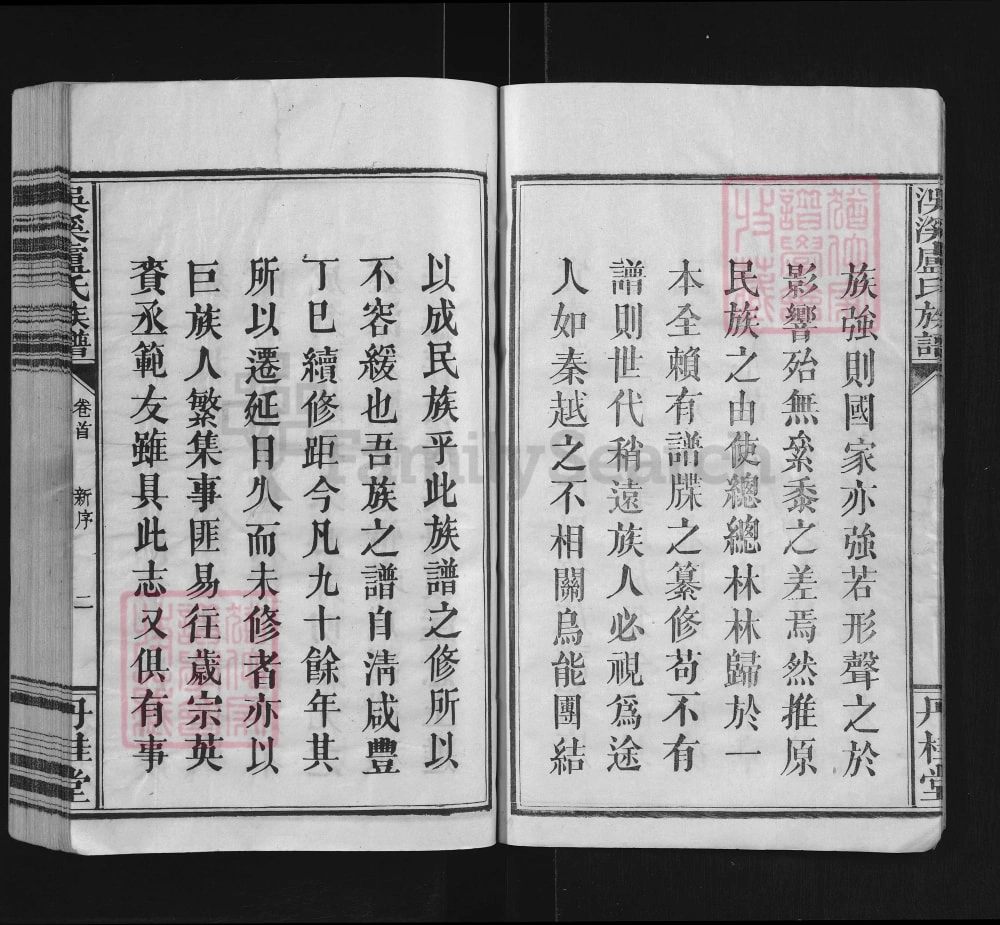 族強則國家亦強若形聲之於
影響殆無絫黍之差焉然推原
民族之由使總總林林歸於一
本全賴有譜牒之纂修苟不有
譜則世代稍遠族人必視爲途
人如秦越之不相關烏能團結
以成民族乎此族譜之修所以
不容緩也吾族之譜自淸咸豐
丁巳續修距今凡九十餘年其
所以遷延日久而未修者亦以
巨族人繁集事匪易往歲宗英
賚丞範友雖具此志又俱有事
盧氏族譜
卷首
新序
二
丹桂堂
FamilySearch